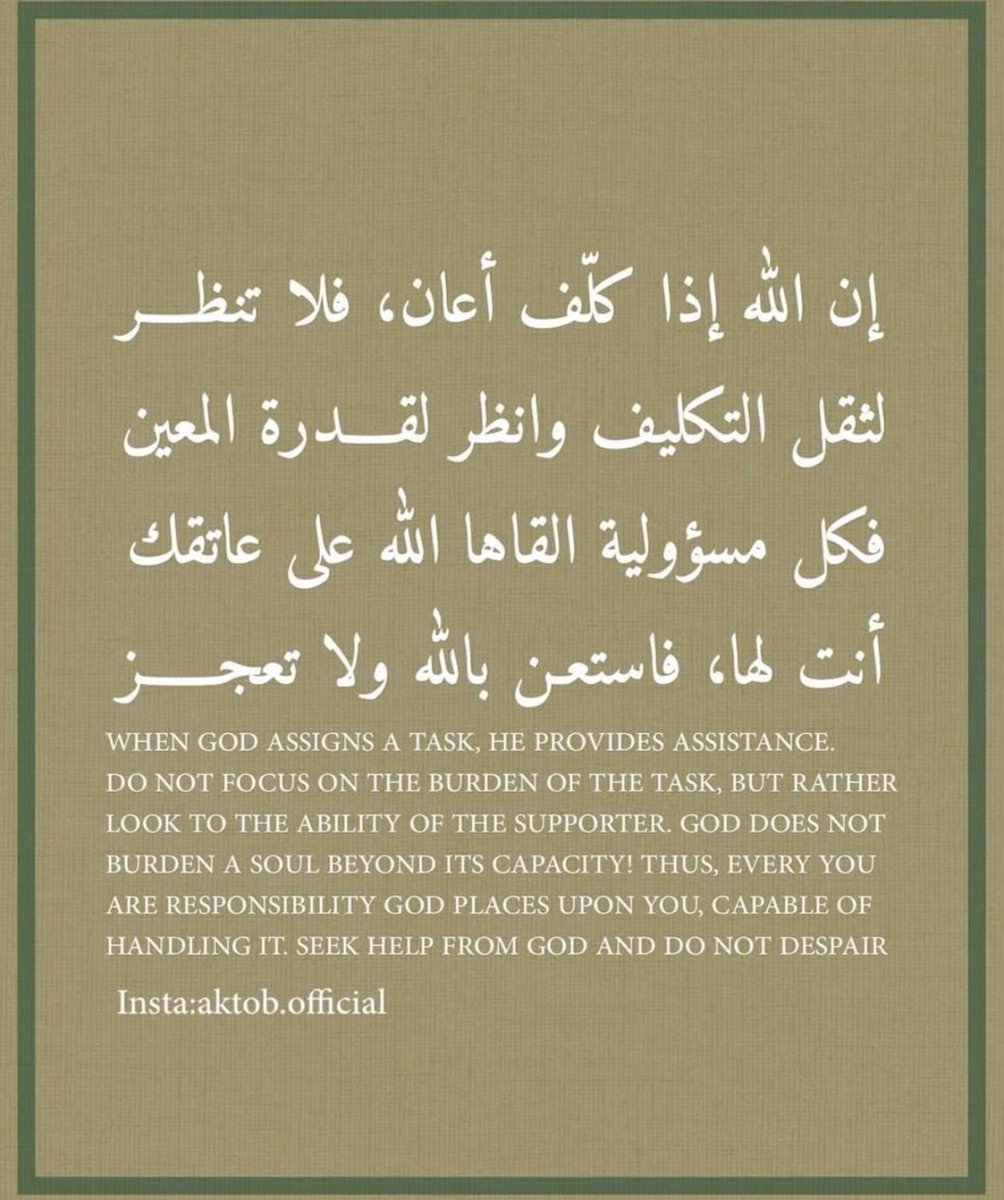 إن الله إذا كلّف أعان، فلا تنظـــر
لثقل التكليف وانظر لقـــدرة المعين
فكل مسؤولية القاها الله على عاتقك
أنت لها، فاستعن بالله ولا تعجـــز
WHEN GOD ASSIGNS A TASK, HE PROVIDES ASSISTANCE.
DO NOT FOCUS ON THE BURDEN OF THE TASK, BUT RATHER
LOOK TO THE ABILITY OF THE SUPPORTER. GOD DOES NOT
BURDEN A SOUL BEYOND ITS CAPACITY! THUS, EVERY YOU
ARE RESPONSIBILITY GOD PLACES UPON YOU, CAPABLE OF
HANDLING IT. SEEK HELP FROM GOD AND DO NOT DESPAIR
Insta:aktob.official